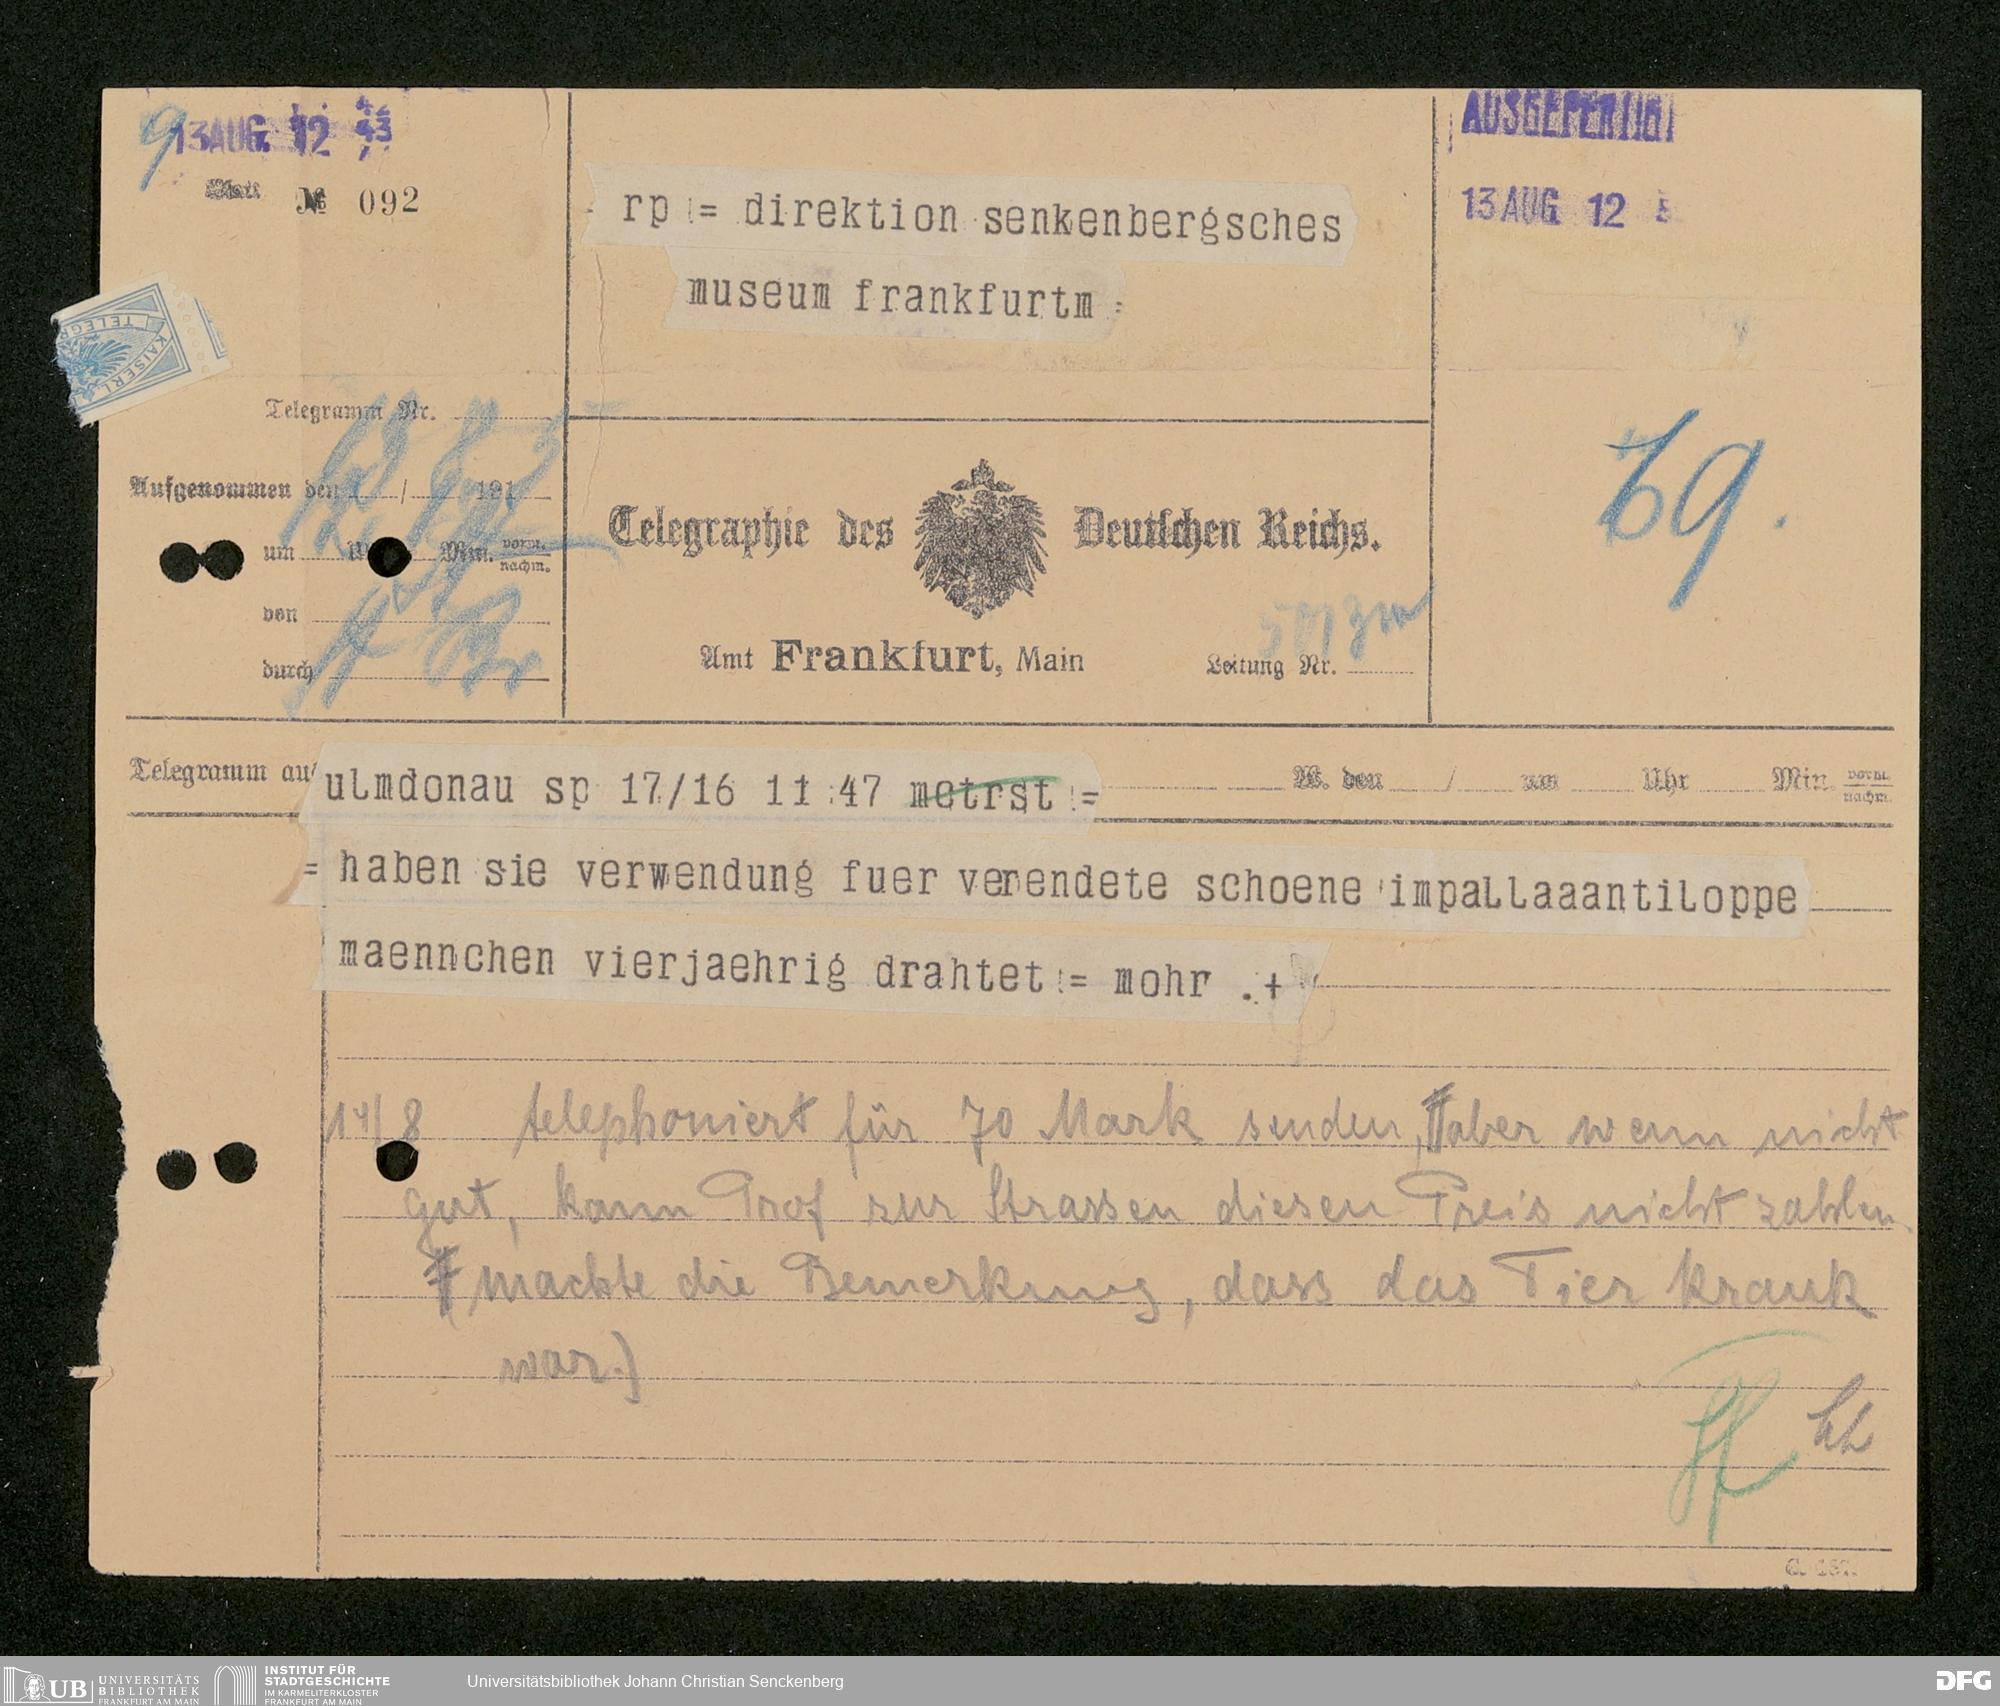 13 AUG. 12
Blatt № 092
rp = direktion senkenbergsches
museum frankfurtm =
AUSGEFERTIGT
13 AUG. 12
KAISERL.
TELEGR
Telegramm Nr.
Aufgenommen den / 191
um Uhr Min. vorm. nachm.
von
durch
Telegraphie des Deutschen Reichs.
Amt Frankfurt, Main
Leitung Nr.
69.
Telegramm aus ulmdonau sp 17/16 11 47 metrst = W. den / um Uhr Min. vorm. nachm.
= haben sie verwendung fuer verendete schoene impallaaantiloppe
maennchen vierjaehrig drahtet = mohr . +
14/8 telephoniert für 70 Mark senden, aber wenn nicht
gut, kann Prof zur Strassen diesen Preis nicht zahlen
machte die Bemerkung, dass das Tier krank
war.)
C. 187.
UB UNIVERSITÄTS
BIBLIOTHEK
FRANKFURT AM MAIN
INSTITUT FÜR
STADTGESCHICHTE
IM KARMELITERKLOSTER
FRANKFURT AM MAIN
Universitätsbibliothek Johann Christian Senckenberg
DFG